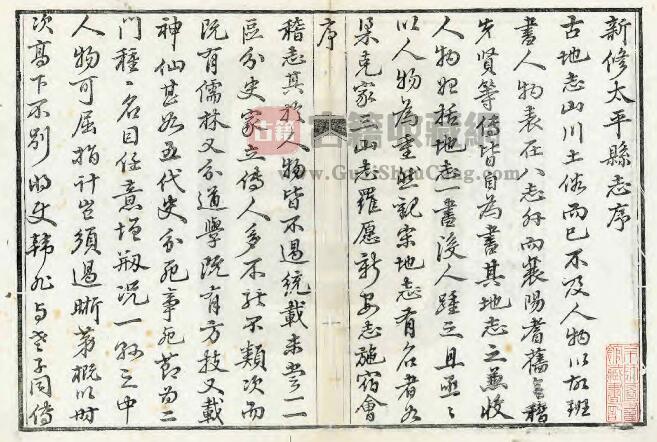 新修太平縣志序
古地志山川土俗而已不及人物以故班
書人物表在八志外而襄陽耆舊會稽
先賢等傳皆自為書其地志之兼收
人物始括地志一書後人踵之且亟亟
以人物為重然觀宋地志有名者如
梁克家三山志羅愿新安志施宿會
序
稽志其於人物皆不過統載未嘗一一
區分史家立傳人多不能不類次而
既有儒林又分道學既有方技又載
神仙甚如五代史分死事死節為二
門種種名目任意增剙況一縣之中
人物可屈指計豈須過晰第概以時
次高下不別將史韓非与老子同傳
古籍
古籍收藏網
www.GuJiShouCang.com